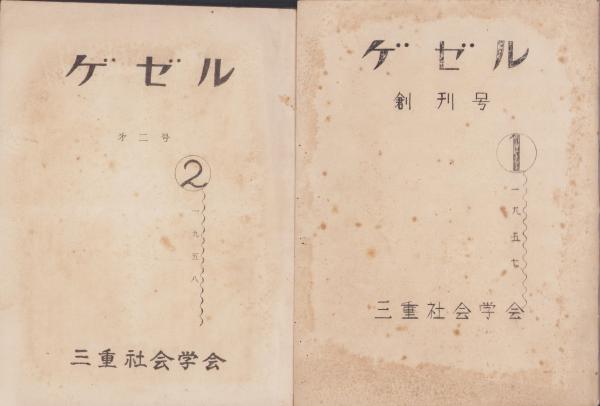 ゲゼル
才二号
2
一九五八
三重社会学会
ゲゼル
創刊号
1
一九五七
三重社会学会